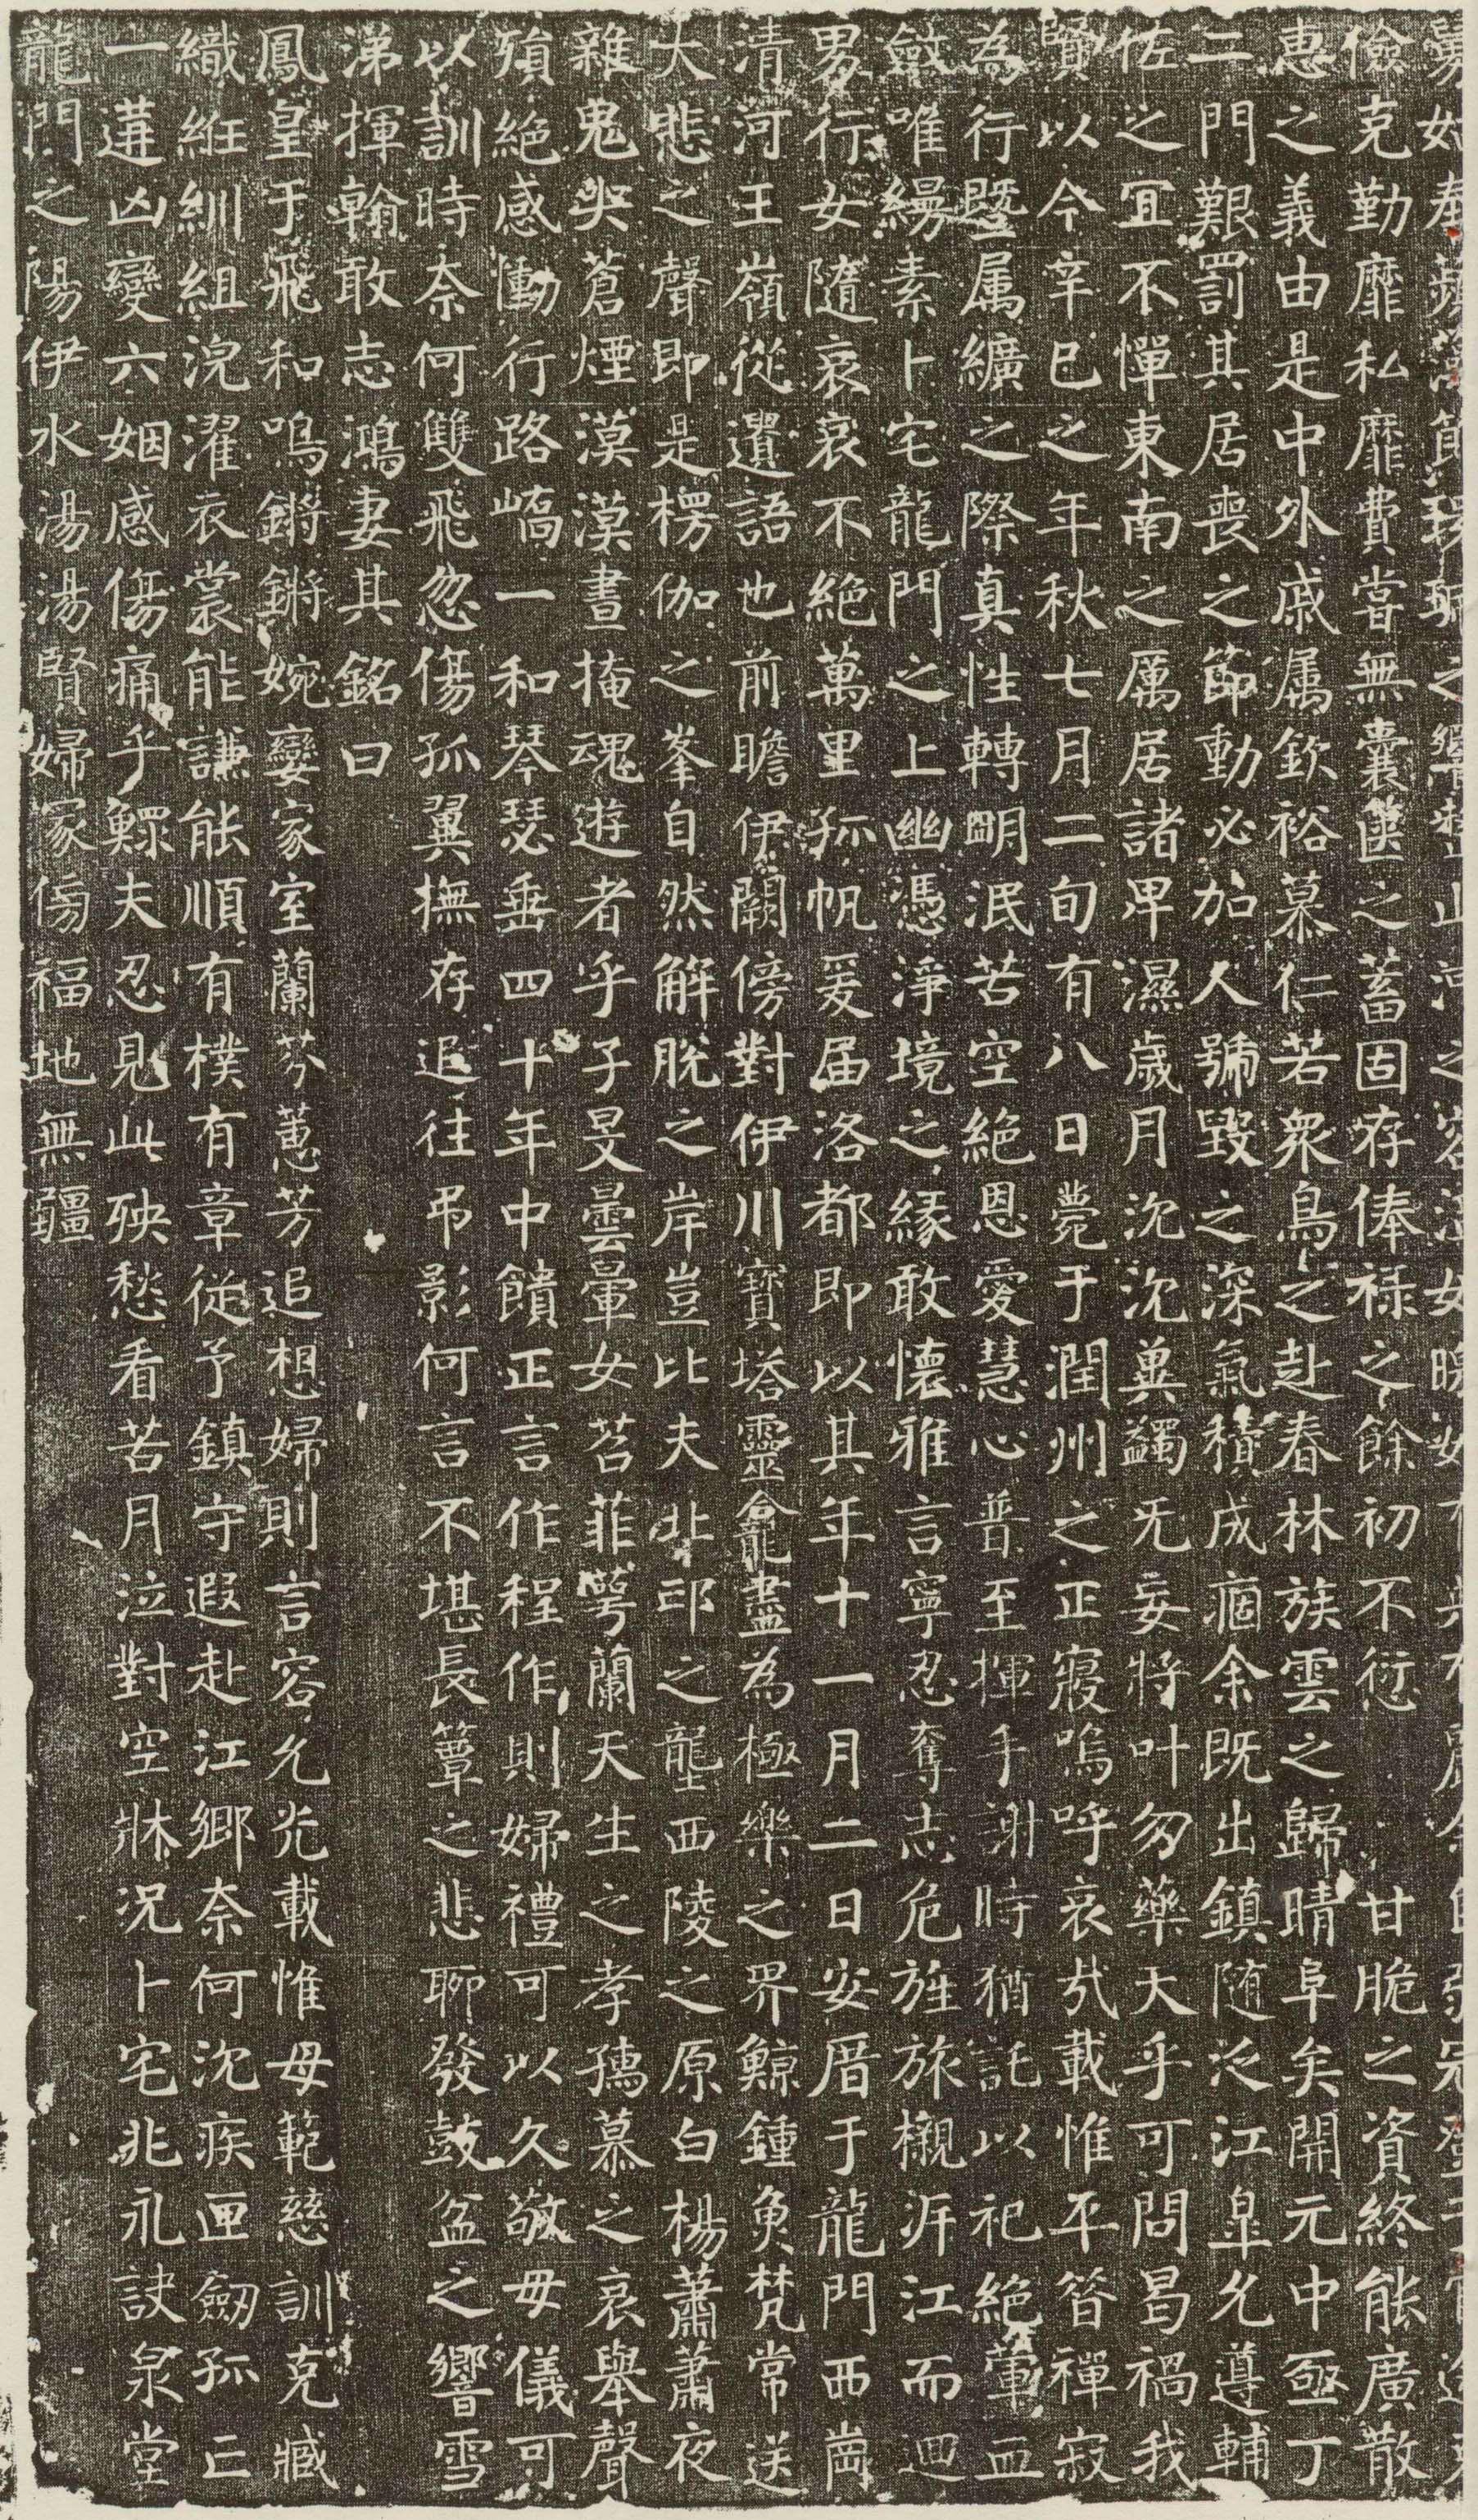 儉克勤靡私靡費嘗無囊篋之蓄固存俸祿之餘初不愆甘脆之資終能廣散
惠之義由是中外戚属欽裕慕仁若衆鳥之赴春林族雲之歸晴阜矣開元中亟丁
二門艱罰其居喪之節動必加人號毀之深氣積成痼余既出鎮随泛江皐允遵輔
佐之冝不憚東南之厲居諸卑濕歲月沈沈冀蠲旡妄將叶勿藥天乎可問曷禍我
賢以今辛巳之年秋七月二旬有八日薨于潤州之正寢嗚呼哀㢤載惟平昝禪寂
為行暨属纊之際真性轉明泯苦空絕恩愛慧心普至揮手謝時猶託以祀絕葷血
斂唯縵素卜宅龍門之上幽憑淨境之緣敢懷雅言寧忍奪志危旌旅櫬泝江而迴
男行女随哀哀不絕萬里孤帆爰届洛都即以其年十一月二日安厝于龍門西崗
清河王嶺從遺語也前瞻伊闕傍對伊川寶塔靈龕盡為極樂之界鯨鍾魚梵常送
大悲之聲即是楞伽之峯自然解脫之岸豈比夫北邙之壠西陵之原白楊蕭蕭夜
雜鬼哭蒼煙漠漠晝掩魂遊者乎子旻曇暈女苕菲萼蘭天生之孝孺慕之哀舉聲
殞絕感慟行路嶠一和琴瑟垂四十年中饋正言作程作則婦禮可以久敬母儀可
以訓時奈何雙飛忽傷孤翼撫存追往弔影何言不堪長簟之悲聊發鼓盆之響雪
涕揮翰敢志鴻妻其銘曰
鳳皇于飛和鳴鏘鏘婉孌家室蘭芬蕙芳追想婦則言容允光載惟母範慈訓克臧
織紝紃組浣濯衣裳能謙能順有樸有章從予鎮守遐赴江鄉奈何沈疾匣劒孤亡
一遘凶變六姻感傷痛乎鰥夫忍見此殃愁看苦月泣對空牀况卜宅兆永訣泉堂
龍門之陽伊水湯湯賢婦冢傍福地無疆